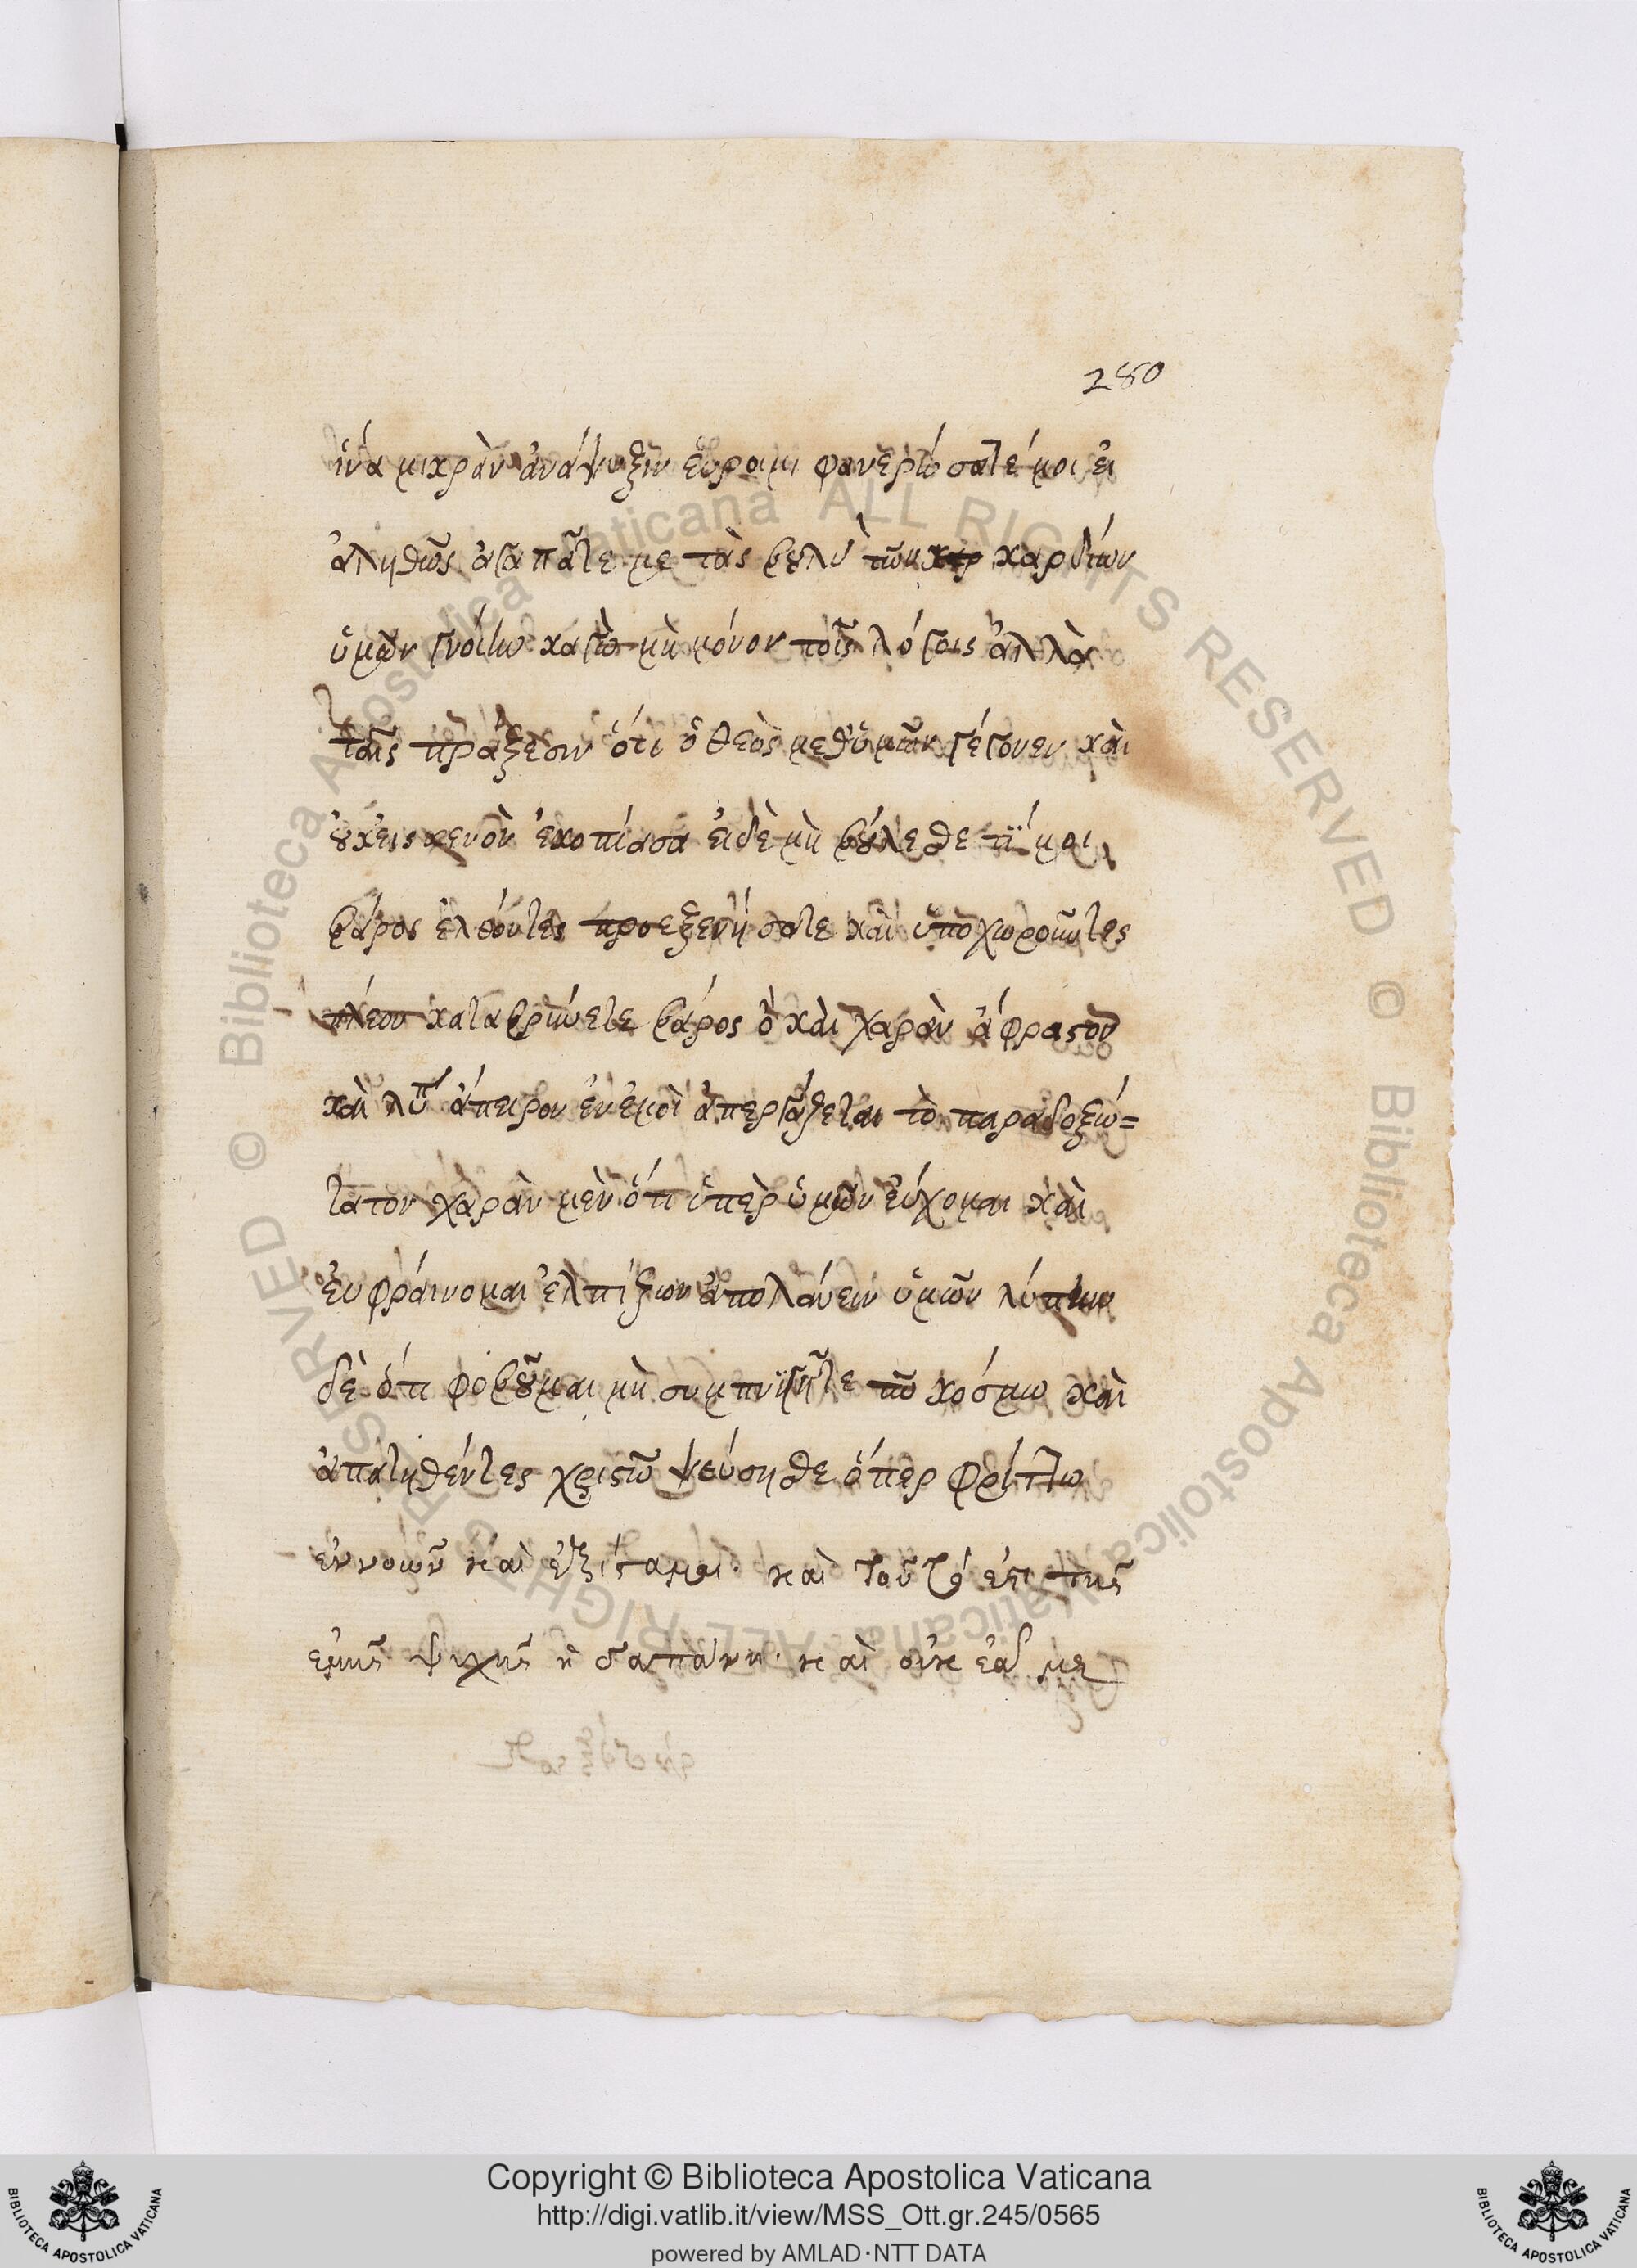 280
ἵνα μικρὰν ἀνάψυξιν εὕροιμι φανερώσατέ μοι εἰ
ἀληθῶς ἀγαπᾶτε με τὰς βουλὰ τῶν καρδιῶν
ὑμῶν γνοίην κἀγὼ μὴ μόνον τοῖς λόγοις ἀλλὰ
ταῖς πράξεσιν ὅτι ὁ θεὸς μεθ' ὑμῶν γέγονεν καὶ
οὐκ εἰς κενὸν ἐκοπίασα εἰ δὲ μὴ βούλεσθε τί μοι
βάρος ἐλθόντες προεξενήσατε καὶ ὑποχωροῦντες
πλέον καταβρύνετε βάρος ὃ καὶ χαρὰν ἄφραστον
καὶ λύπ ἄπειρον ἐν ἐμοὶ ἀπεργάζεται τὸ παραδοξώ=
τατον χαρὰν μὲν ὅτι ὑπὲρ ὑμῶν εὔχομαι καὶ
εὐφραίνομαι ἐλπίζων ἀπολαύειν ὑμῶν λύπην
δὲ ὅτι φοβοῦμαι μὴ συμπνιγῆτε τῷ κόσμω καὶ
ἀπατηθέντες χριστῶ ψεύσησθε ὅπερ φρίττω
ἐννοῶν καὶ ἐξίσταμαι. καὶ τοῦτό ἐστι τῆς
ἐμῆς ψυχῆς ἡ δαπάνη. καὶ οὐκ ἐᾶ με
Copyright © Biblioteca Apostolica Vaticana
http://digi.vatlib.it/view/MSS_Ott.gr.245/0565
powered by AMLAD·NTT DATA
BIBLIOTECA APOSTOLICA VATICANA
BIBLIOTECA APOSTOLICA VATICANA
© Biblioteca Apostolica Vaticana ALL RIGHTS RESERVED © Biblioteca Apostolica Vaticana ALL RIGHTS RESERVED